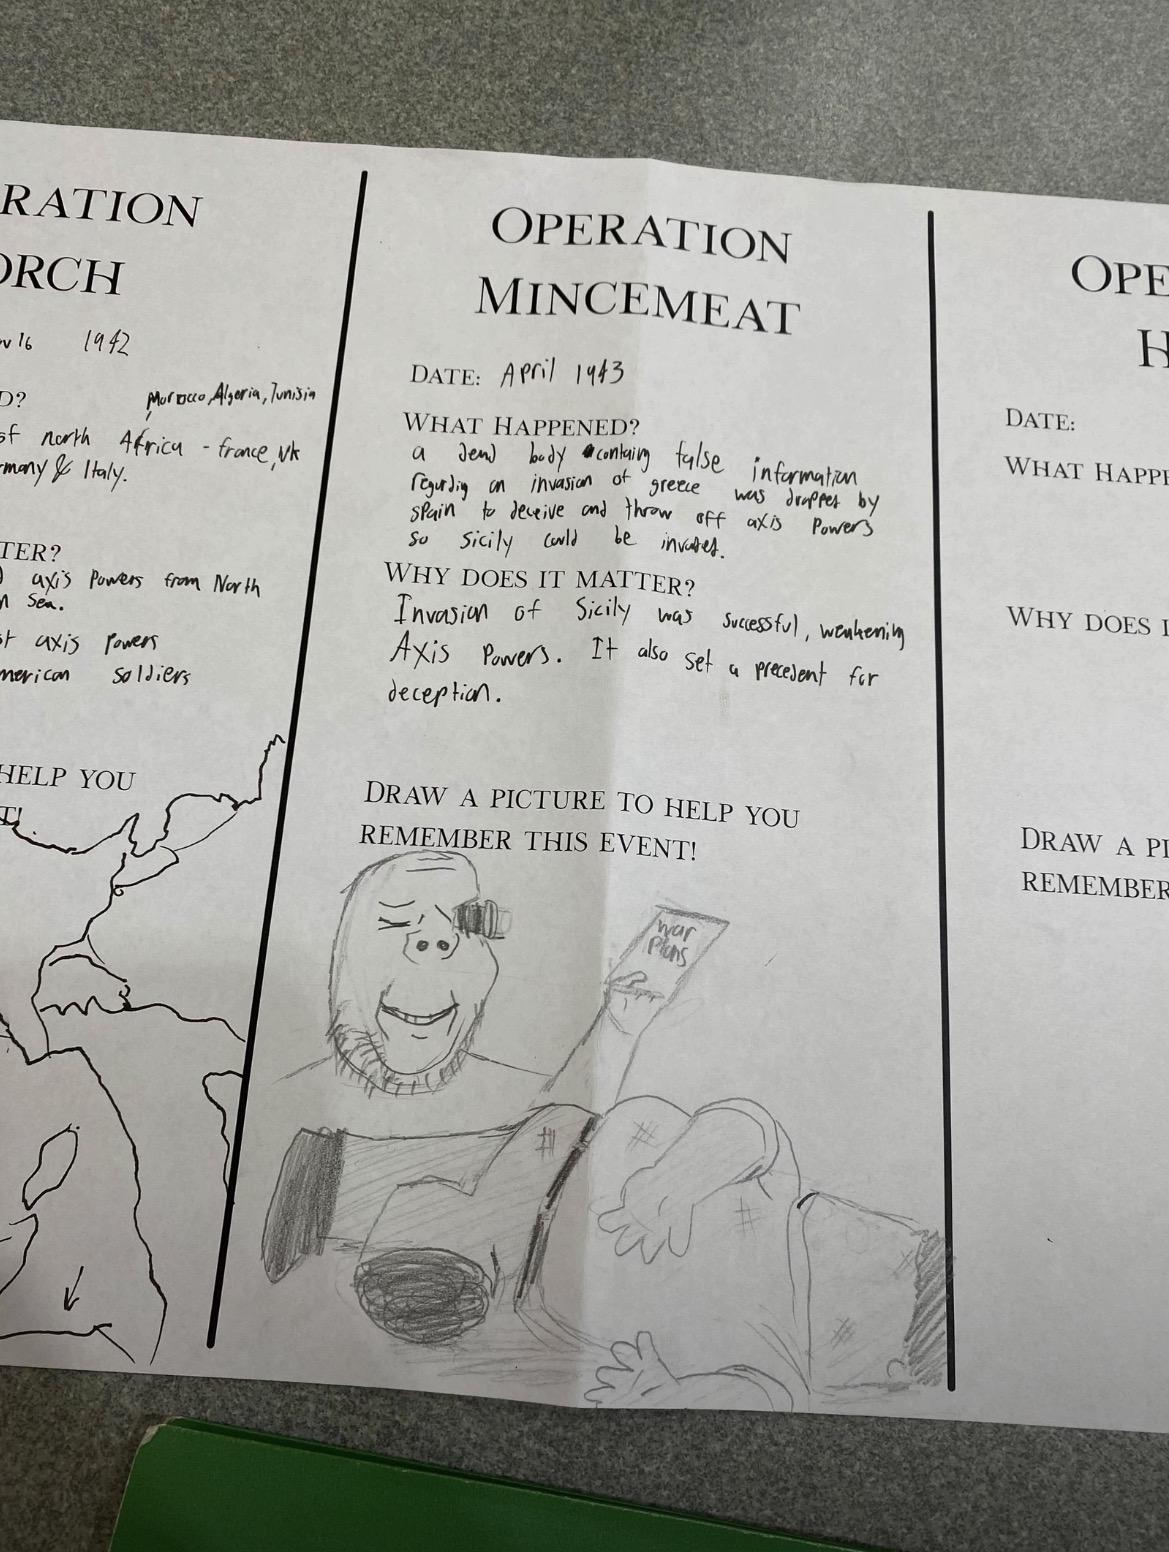 RATION
ORCH
v 16 1942
D?
Morocco, Algeria, Tunisia
of north Africa - france, UK
rmany & Italy.
TER?
axis Powers from North
n Sea.
st axis powers
merican soldiers
HELP YOU
T!
OPERATION
MINCEMEAT
DATE: April 1943
WHAT HAPPENED?
a dead body containg false information
regurdig an invasion of greece was dropped by
spain to deceive and throw off axis Powers
so Sicily could be invaded.
WHY DOES IT MATTER?
Invasion of Sicily was successful, weakening
Axis Powers. It also set a precedent for
deception.
DRAW A PICTURE TO HELP YOU
REMEMBER THIS EVENT!
war
plans
OPE
H
DATE:
WHAT HAPPE
WHY DOES I
DRAW A PI
REMEMBER